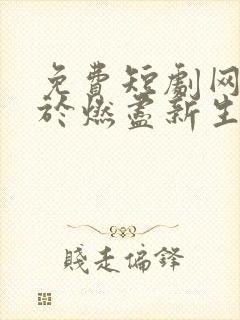 免費短劇网
於燃盡新生
賤走偏鋒